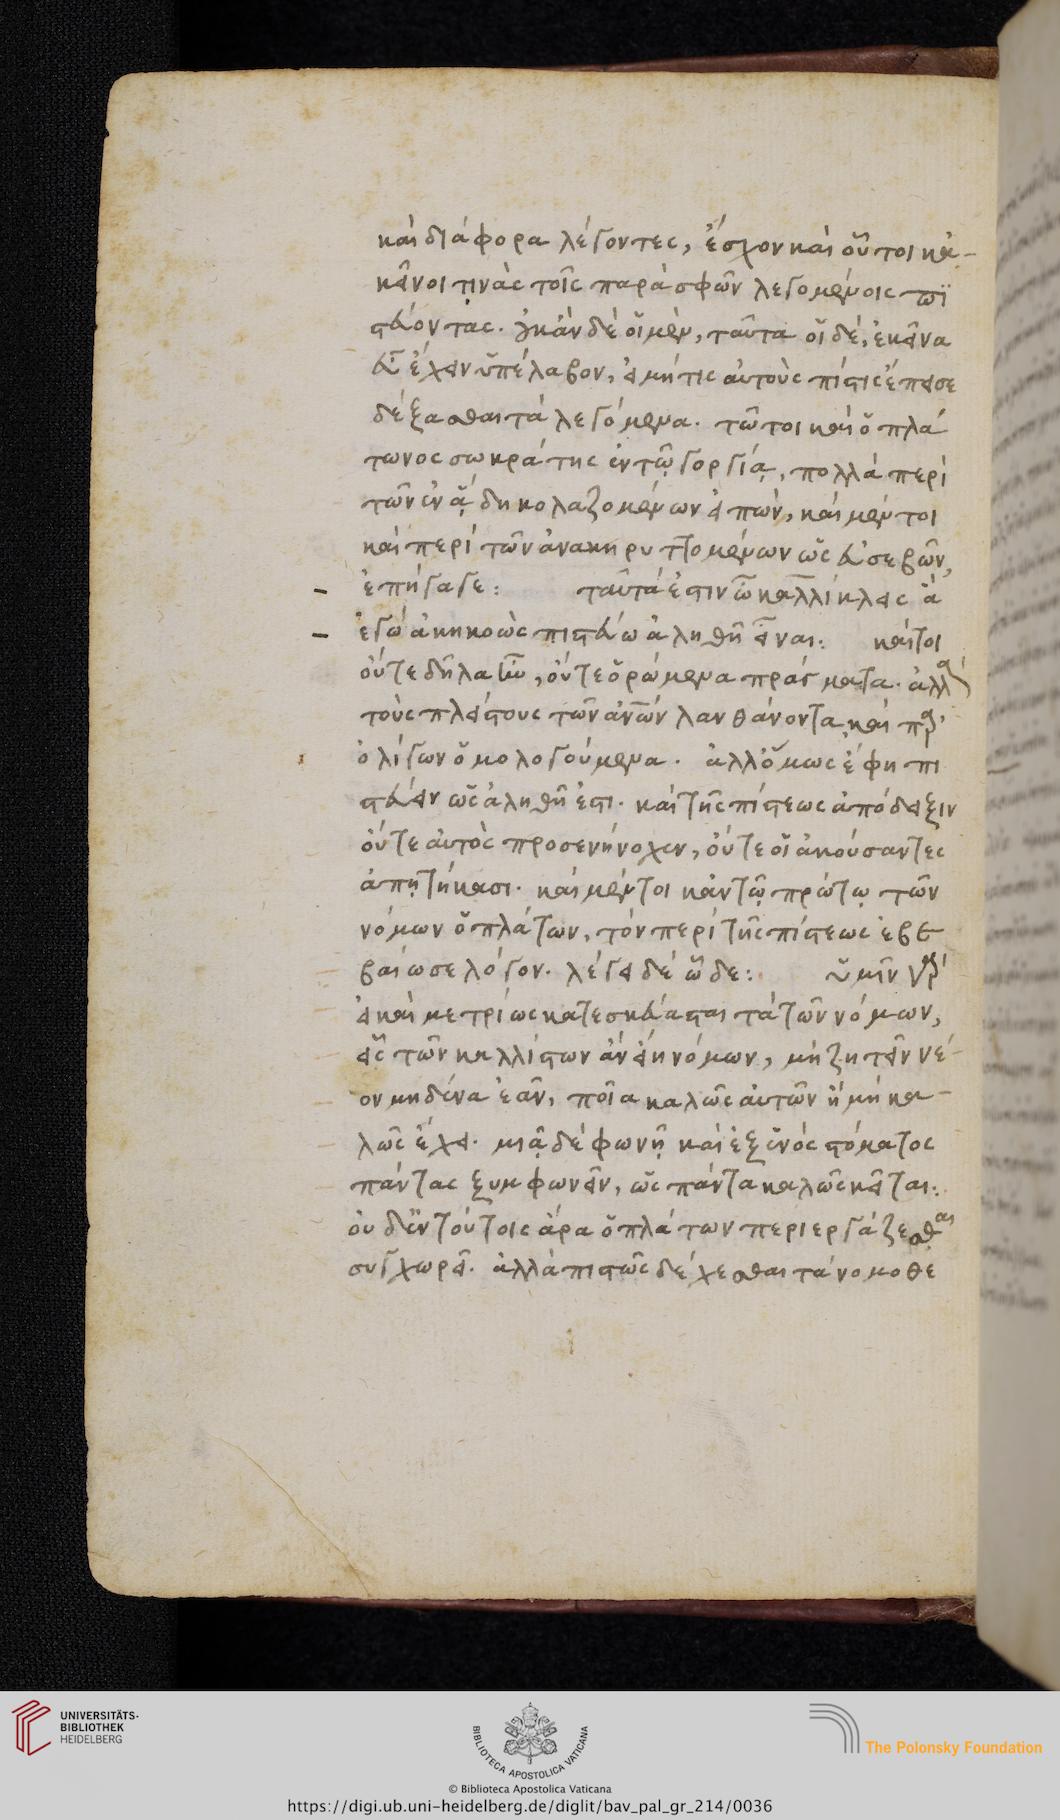 καὶ διάφορα λέγοντες, ἔσχον καὶ οὗτοι κἀ-
κεῖνοι τινὰς τοῖς παρὰ σφῶν λεγομένοις πϊ
στεύοντας. ἐκεῖν δὲ οἱ μὲν, ταῦτα οἱ δὲ, ἐκεῖνα
εὖ ἔχειν ὑπέλαβον, εἰ μή τις αὐτοὺς πίστις ἔπεισε
δέξασθαι τὰ λεγόμενα. τῶ τοι καὶ ὁ πλά
τωνος σωκράτης ἐν τῷ γοργίᾳ, πολλὰ περὶ
τῶν ἐν ᾅδη κολαζομένων εἰπὼν, καὶ μέν τοι
καὶ περὶ τῶν ἀνακηρυττομένων ὡς εὐσεβῶν,
ἐπήγαγε: ταῦτά ἐστιν ὦ καλλίκλεις ἃ
ἐγὼ ἀκηκοὼς πιστεύω ἀληθῆ εἶναι: καίτοι
οὔτε δῆλα ἦν, οὔτε ὁρώμενα πράγματα. ἀλλὰ
τοὺς πλείστους τῶν ἀνῶν λανθάνοντα, καὶ παρ'
ὀλίγων ὁμολογούμενα. ἀλλ' ὅμως ἔφη πι
στεύειν ὡς ἀληθῆ ἐστι. καὶ τῆς πίστεως ἀπόδειξιν
οὔτε αὐτὸς προσενήνοχεν, οὔτε οἱ ἀκούσαντες
ἀπῃτήκασι. καὶ μέντοι κἀν τῷ πρώτῳ τῶν
νόμων ὁ πλάτων, τὸν περὶ τῆς πίστεως ἐβε
βαίωσε λόγον. λέγει δὲ ὧδε: ὑμῖν γὰρ
εἰ καὶ μετρίως κατεσκεύασται τὰ τῶν νόμων,
εἷς τῶν καλλίστων ἂν εἴη νόμων, μὴ ζητεῖν νέ-
ον μηδένα ἐᾶν, ποῖα καλῶς αὐτῶν ἢ μὴ κα-
λῶς ἔχει. μιᾷ δὲ φωνῇ καὶ ἐξ ἑνὸς στόματος
πάντας ξυμφωνεῖν, ὡς πάντα καλῶς κεῖται:
οὐδὲν τούτοις ἄρα ὁ πλάτων περιεργάζεσθαι
συγχωρεῖ. ἀλλὰ πιστῶς δέχεσθαι τὰ νομοθε
UNIVERSITÄTS-
BIBLIOTHEK
HEIDELBERG
BIBLIOTECA APOSTOLICA VATICANA
The Polonsky Foundation
© Biblioteca Apostolica Vaticana
https://digi.ub.uni-heidelberg.de/diglit/bav_pal_gr_214/0036